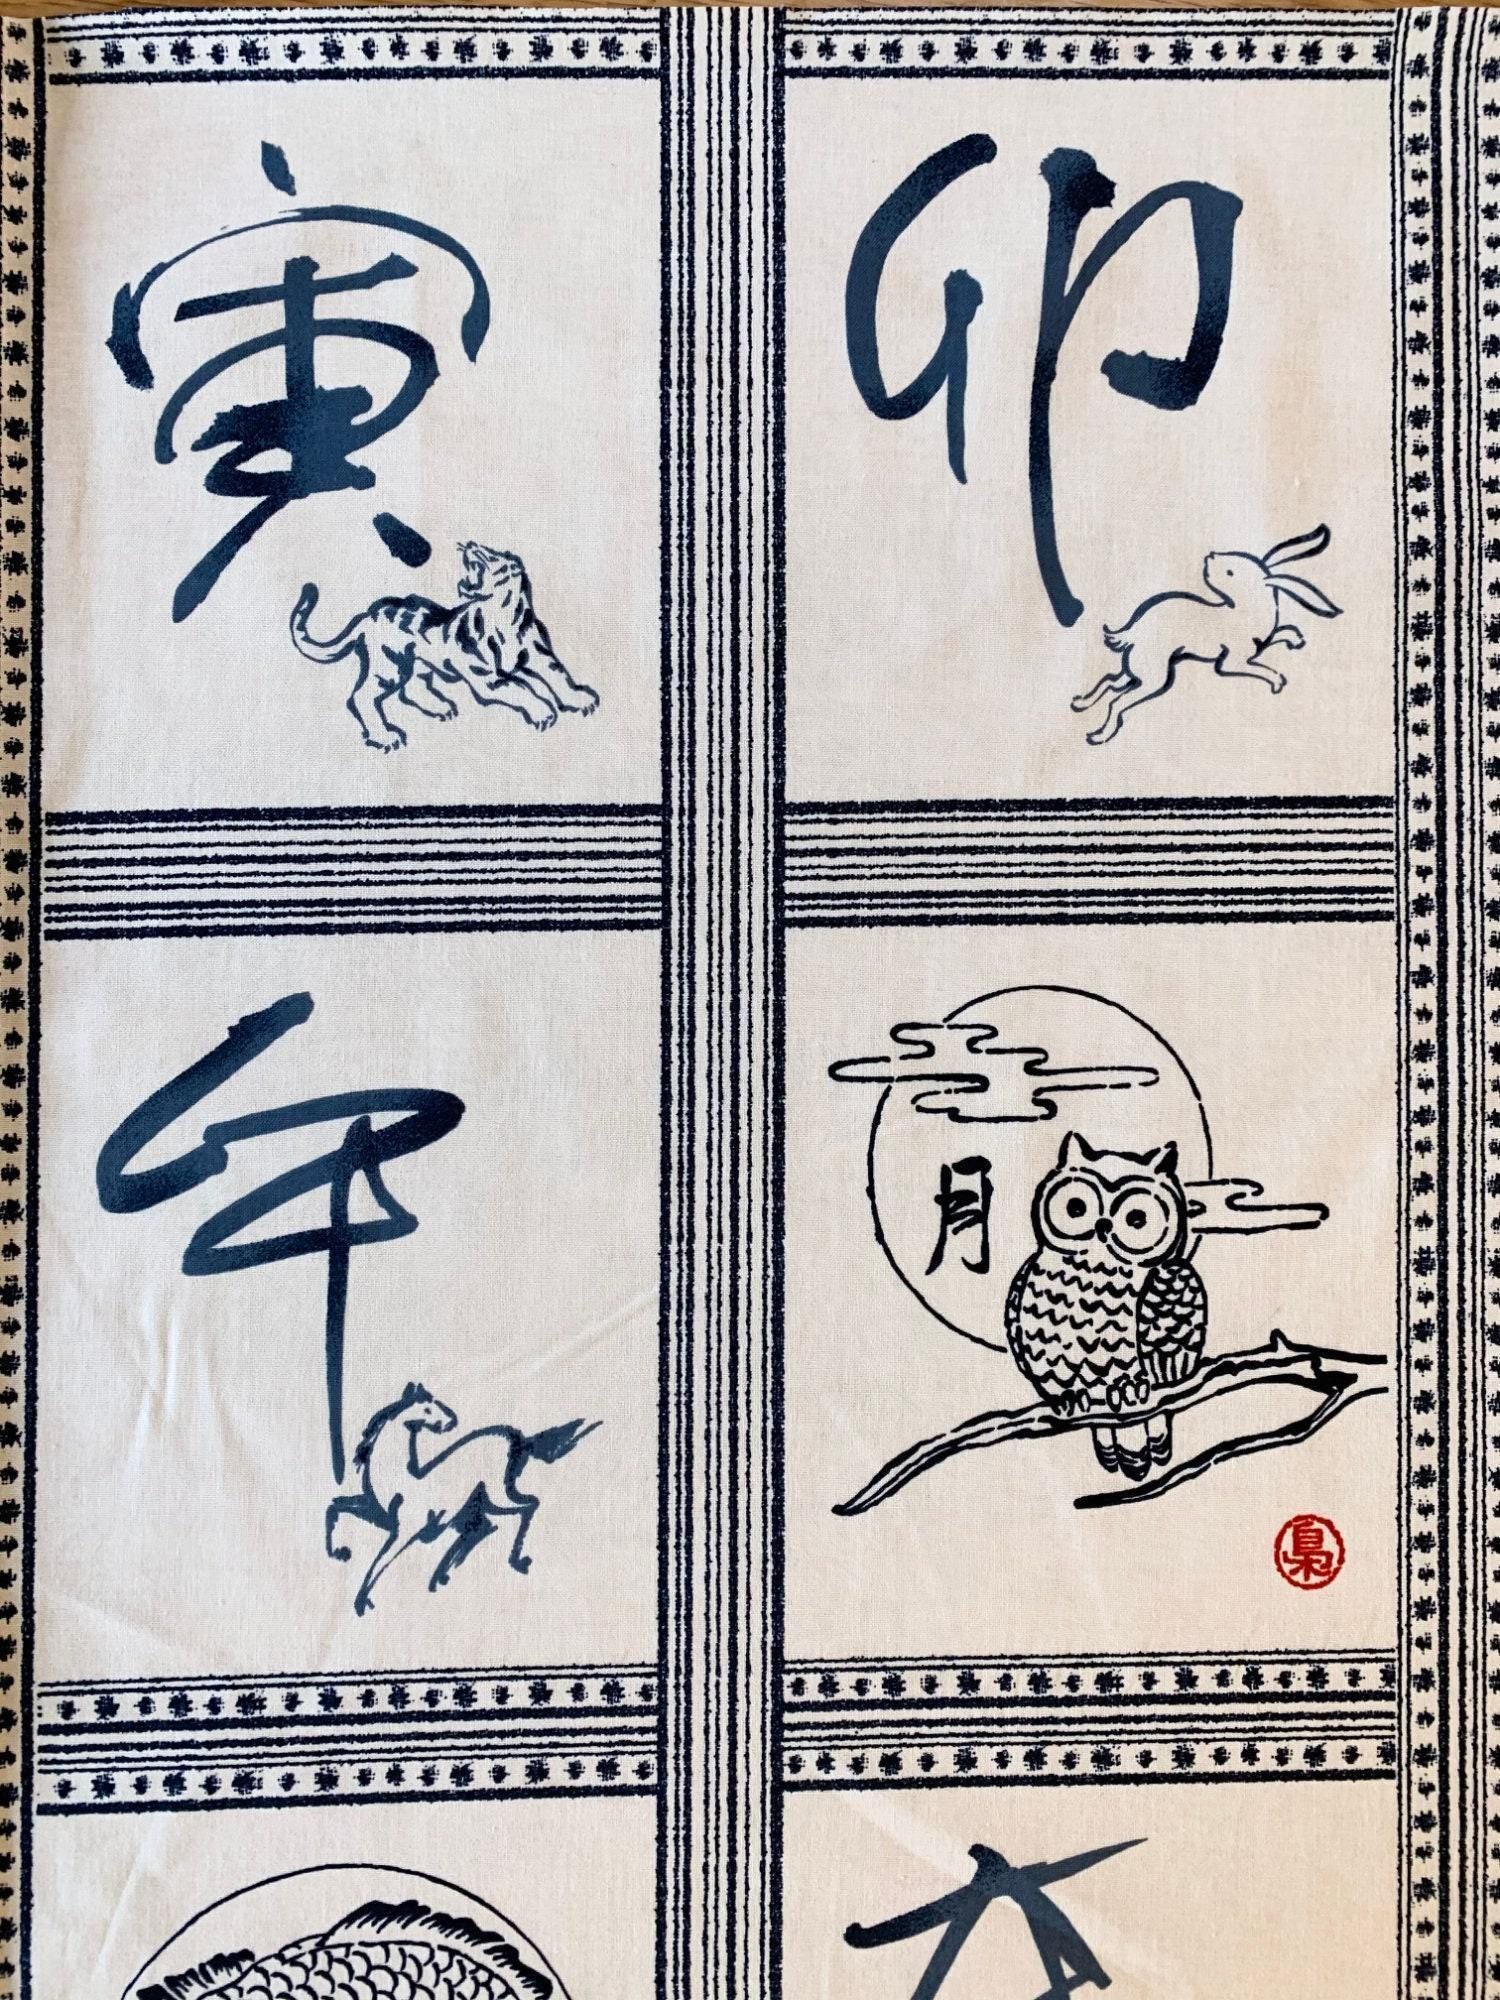 寅
卯
午
月
梟